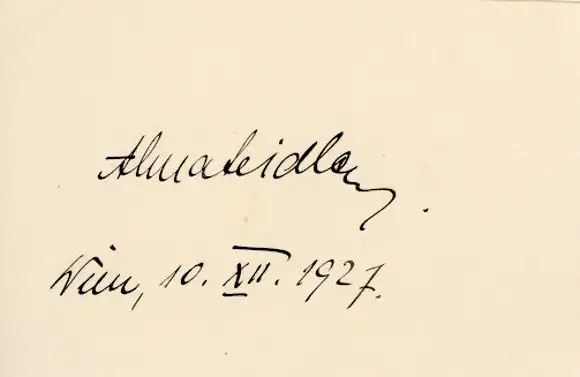 Alma Seidler.
Wien, 10. XII. 1927.